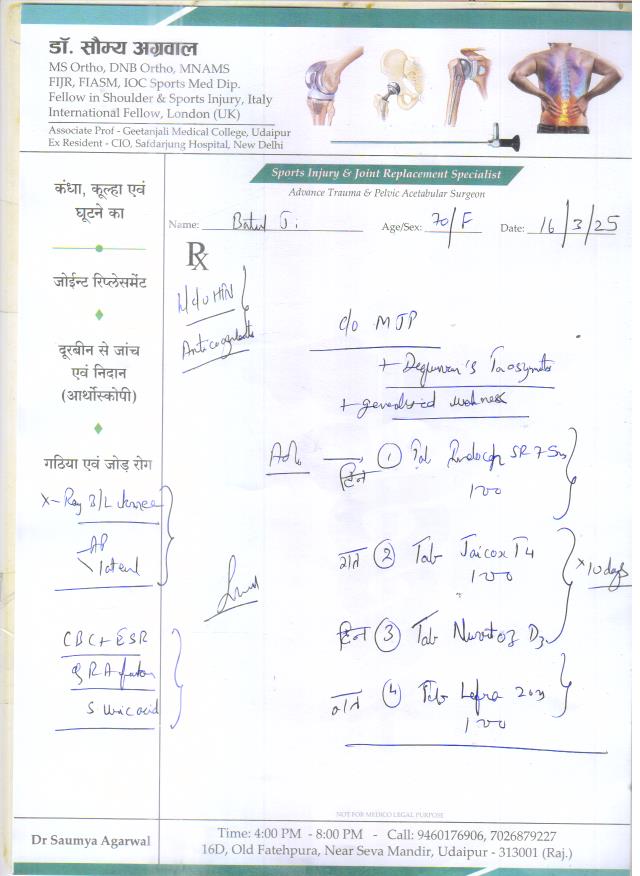 डॉ. सौम्य अग्रवाल
MS Ortho, DNB Ortho, MNAMS
FIJR, FIASM, IOC Sports Med Dip.
Fellow in Shoulder & Sports Injury, Italy
International Fellow, London (UK)
Associate Prof - Geetanjali Medical College, Udaipur
Ex Resident - CIO, Safdarjung Hospital, New Delhi
Sports Injury & Joint Replacement Specialist
Advance Trauma & Pelvic Acetabular Surgeon
Name: Ji Age/Sex: 70/F Date: 16/3/25
कंधा, कूल्हा एवं
घूटने का
जोईन्ट रिप्लेसमेंट
दूरबीन से जांच
एवं निदान
(आर्थोस्कोपी)
गठिया एवं जोड़ रोग
Rx
HTN
c/o MJP
+
+ generalised weakness
दिन ① Tab SR 75
1-00
रात ② Tab T4
100
× 10 days
दिन ③ Tab D3
रात ④ Tab 20
100
X-Ray B/L knee
AP
lateral
CBC + ESR
RA factor
S uric acid
NOT FOR MEDICO LEGAL PURPOSE
Dr Saumya Agarwal
Time: 4:00 PM - 8:00 PM - Call: 9460176906, 7026879227
16D, Old Fatehpura, Near Seva Mandir, Udaipur - 313001 (Raj.)